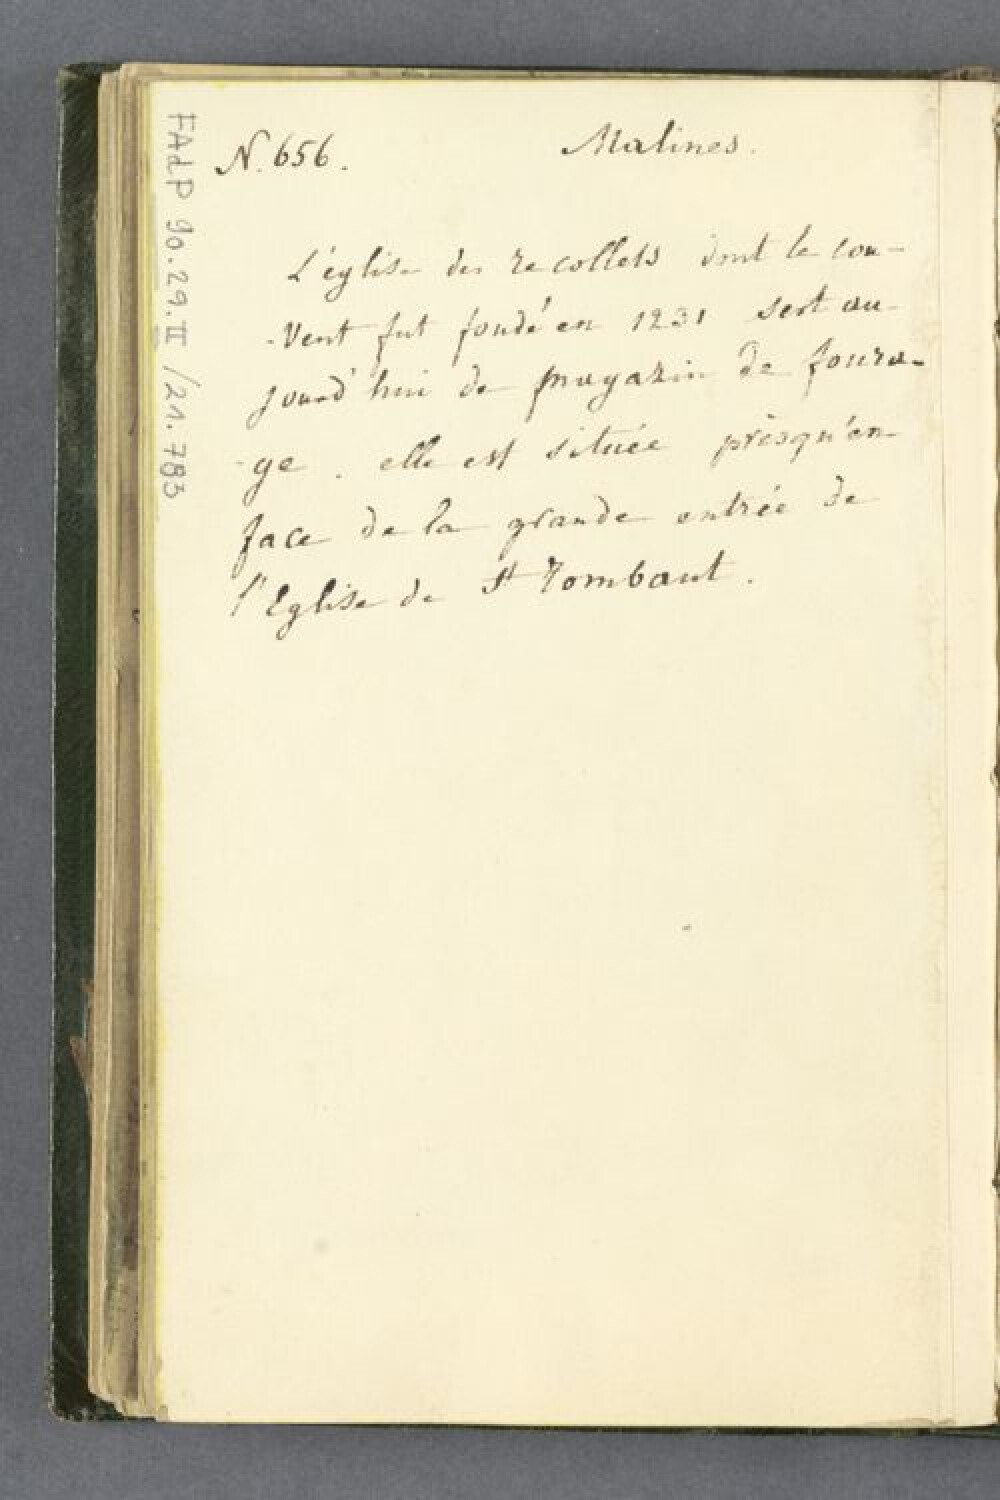 N. 656.
Malines.
L'église des recollets dont le cou-
-vent fut fondé en 1231 sert au-
jourd'hui de magazin de foura-
-ge. elle est située prèsqu'en-
face de la grande entrée de
l'Eglise de St rombaut.
FAdP 90.29.II /21.783